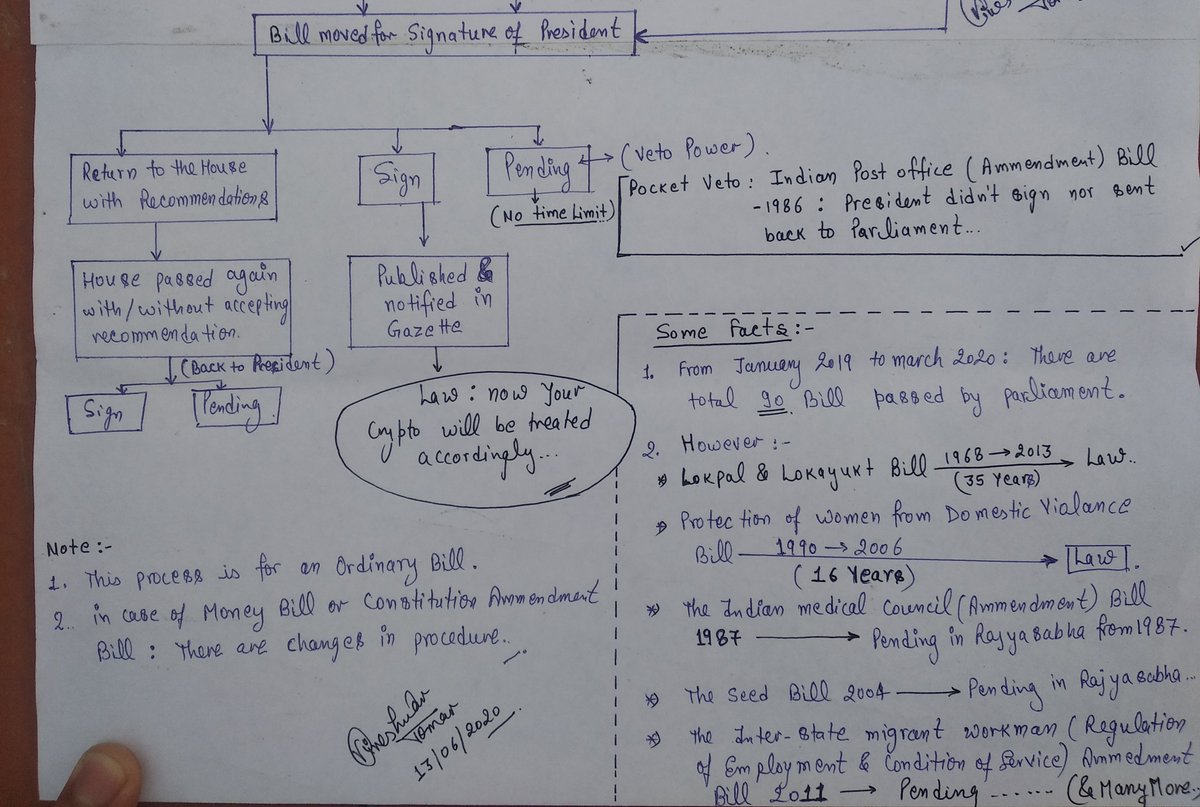 Bill moved for Signature of President
Return to the House
with Recommendations
Sign
Pending
(Veto Power).
(No time Limit)
Pocket Veto : Indian Post office (Ammendment) Bill
-1986 : President didn't sign nor sent
back to Parliament...
House passed again
with/without accepting
recommendation.
(Back to President)
Sign
Pending
Published &
notified in
Gazette
Law : now Your
Crypto will be treated
accordingly...
Note :-
1. This process is for an Ordinary Bill.
2. in case of Money Bill or Constitution Ammendment
Bill : There are changes in procedure..
Tomar
13/06/2020
Some Facts :-
1. From January 2019 to march 2020 : There are
total 90 Bill passed by parliament.
2. However :-
Lokpal & Lokayukt Bill 1968 → 2013 Law..
(35 Years)
Protection of women from Domestic Vialance
Bill 1990 → 2006 Law.
(16 Years)
The Indian medical council (Ammendment) Bill
1987 → Pending in Rajyasabha from 1987.
The Seed Bill 2004 → Pending in Rajyasabha...
The Inter-state migrant workman (Regulation
of Employment & Condition of Service) Ammedment
Bill 2011 → Pending ...... (& Many More